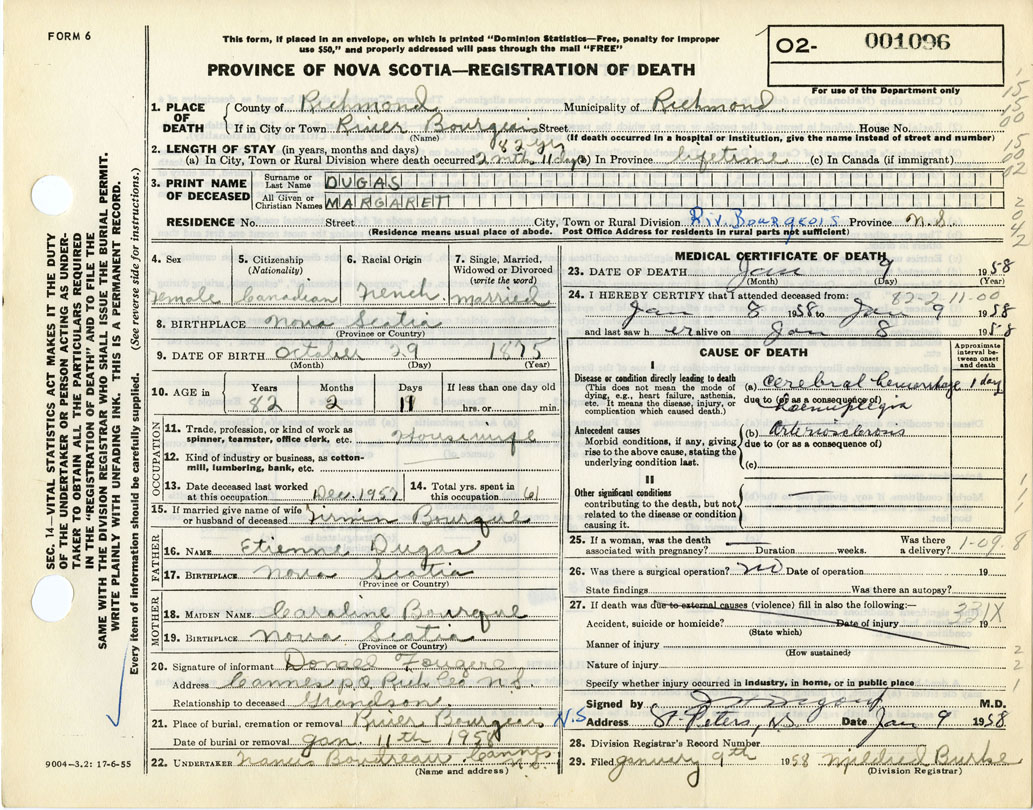 FORM 6
This form, if placed in an envelope, on which is printed "Dominion Statistics—Free, penalty for improper
use $50," and properly addressed will pass through the mail "FREE"
02- 001096
For use of the Department only
PROVINCE OF NOVA SCOTIA—REGISTRATION OF DEATH
1. PLACE OF DEATH { County of Richmond Municipality of Richmond
If in City or Town River Bourgeois Street House No.
(Name) (If death occurred in a hospital or institution, give the name instead of street and number)
2. LENGTH OF STAY (in years, months and days) 82 yrs
(a) In City, Town or Rural Division where death occurred 2 mth 11 days (b) In Province lifetime (c) In Canada (if immigrant)
3. PRINT NAME OF DECEASED
Surname or Last Name DUGAS
All Given or Christian Names MARGARET
RESIDENCE No. Street City, Town or Rural Division Riv. Bourgeois Province N.S.
(Residence means usual place of abode. Post Office Address for residents in rural parts not sufficient)
4. Sex 5. Citizenship (Nationality) 6. Racial Origin 7. Single, Married, Widowed or Divorced (write the word)
Female Canadian French Married
8. BIRTHPLACE Nova Scotia
(Province or Country)
9. DATE OF BIRTH October 29 1875
(Month) (Day) (Year)
10. AGE in Years Months Days If less than one day old
82 2 11 hrs. or min.
OCCUPATION
11. Trade, profession, or kind of work as spinner, teamster, office clerk, etc. Housewife
12. Kind of industry or business, as cotton-mill, lumbering, bank, etc.
13. Date deceased last worked at this occupation Dec. 1957 14. Total yrs. spent in this occupation 61
15. If married give name of wife or husband of deceased Bourque
FATHER
16. NAME Etienne Dugas
17. BIRTHPLACE Nova Scotia
(Province or Country)
MOTHER
18. MAIDEN NAME Caroline Bourque
19. BIRTHPLACE Nova Scotia
(Province or Country)
20. Signature of informant Donald Fougere
Address Cannes P.O. Rich Co. N.S.
Relationship to deceased Grandson
21. Place of burial, cremation or removal River Bourgeois N.S
Date of burial or removal Jan. 11th 1958
22. UNDERTAKER Boudreau Cannes N.S.
(Name and address)
MEDICAL CERTIFICATE OF DEATH
23. DATE OF DEATH Jan 9 1958
(Month) (Day) (Year)
82-2-11-00
24. I HEREBY CERTIFY that I attended deceased from:
Jan 8 1958 to Jan 9 1958
and last saw h er alive on Jan 8 1958
CAUSE OF DEATH
Approximate interval between onset and death
I
Disease or condition directly leading to death
(This does not mean the mode of dying, e.g., heart failure, asthenia, etc. It means the disease, injury, or complication which caused death.)
(a) Cerebral hemorrhage 1 day
due to (or as a consequence of)
Antecedent causes
Morbid conditions, if any, giving rise to the above cause, stating the underlying condition last.
(b) Arteriosclerosis
due to (or as a consequence of)
(c)
II
Other significant conditions
contributing to the death, but not related to the disease or condition causing it.
25. If a woman, was the death associated with pregnancy? Duration weeks. Was there a delivery?
26. Was there a surgical operation? no Date of operation 19
State findings Was there an autopsy?
27. If death was due to external causes (violence) fill in also the following:— 331X
Accident, suicide or homicide? Date of injury 19
(State which)
Manner of injury
(How sustained)
Nature of injury
Specify whether injury occurred in industry, in home, or in public place
Signed by M.D.
Address St. Peters, N.S. Date Jan 9 1958
28. Division Registrar's Record Number
29. Filed January 9th 1958 Mildred Burke
(Division Registrar)
SEC. 14—VITAL STATISTICS ACT MAKES IT THE DUTY
OF THE UNDERTAKER OR PERSON ACTING AS UNDER-
TAKER TO OBTAIN ALL THE PARTICULARS REQUIRED
IN THE "REGISTRATION OF DEATH" AND TO FILE THE
SAME WITH THE DIVISION REGISTRAR WHO SHALL ISSUE THE BURIAL PERMIT.
WRITE PLAINLY WITH UNFADING INK. THIS IS A PERMANENT RECORD.
Every item of information should be carefully supplied. (See reverse side for instructions.)
9004—3.2: 17-6-55